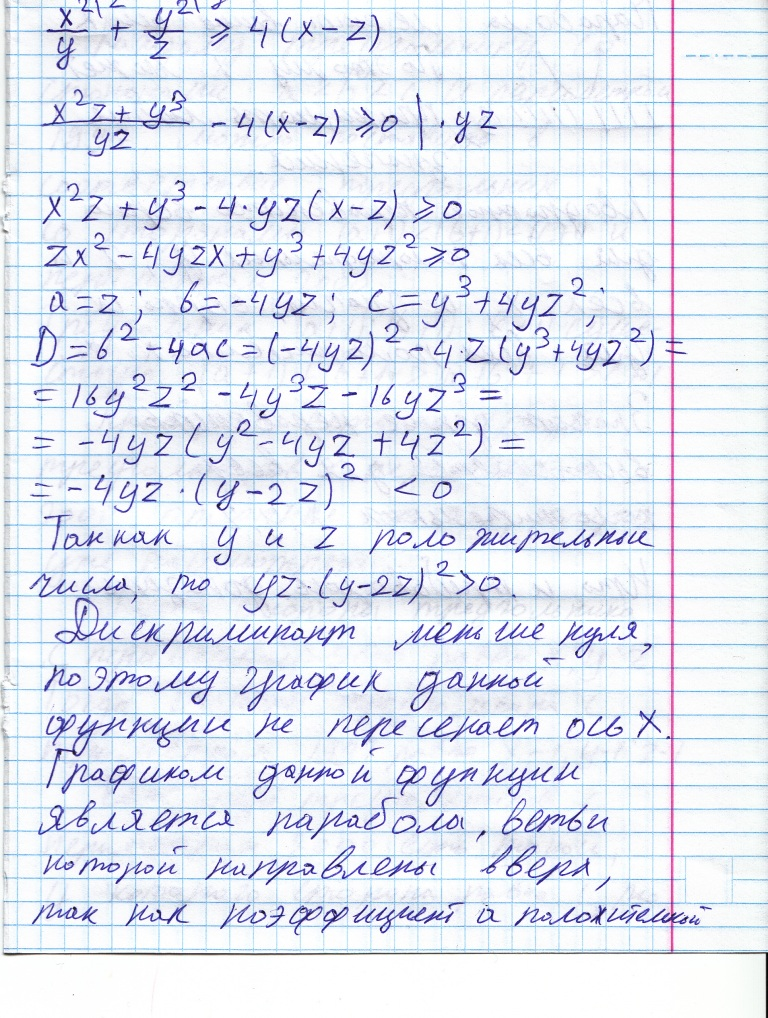 x²/y + y²/z ≥ 4(x-z)
(x²z + y³)/yz - 4(x-z) ≥ 0 | · yz
x²z + y³ - 4·yz(x-z) ≥ 0
zx² - 4yzx + y³ + 4yz² ≥ 0
a = z; b = -4yz; c = y³ + 4yz²;
D = b² - 4ac = (-4yz)² - 4·z(y³ + 4yz²) =
= 16y²z² - 4y³z - 16yz³ =
= -4yz(y² - 4yz + 4z²) =
= -4yz·(y - 2z)² < 0
Так как y и z положительные
числа, то yz·(y-2z)² > 0.
Дискриминант меньше нуля,
поэтому график данной
функции не пересекает ось X.
Графиком данной функции
является парабола, ветви
которой направлены вверх,
так как коэффициент a положительный